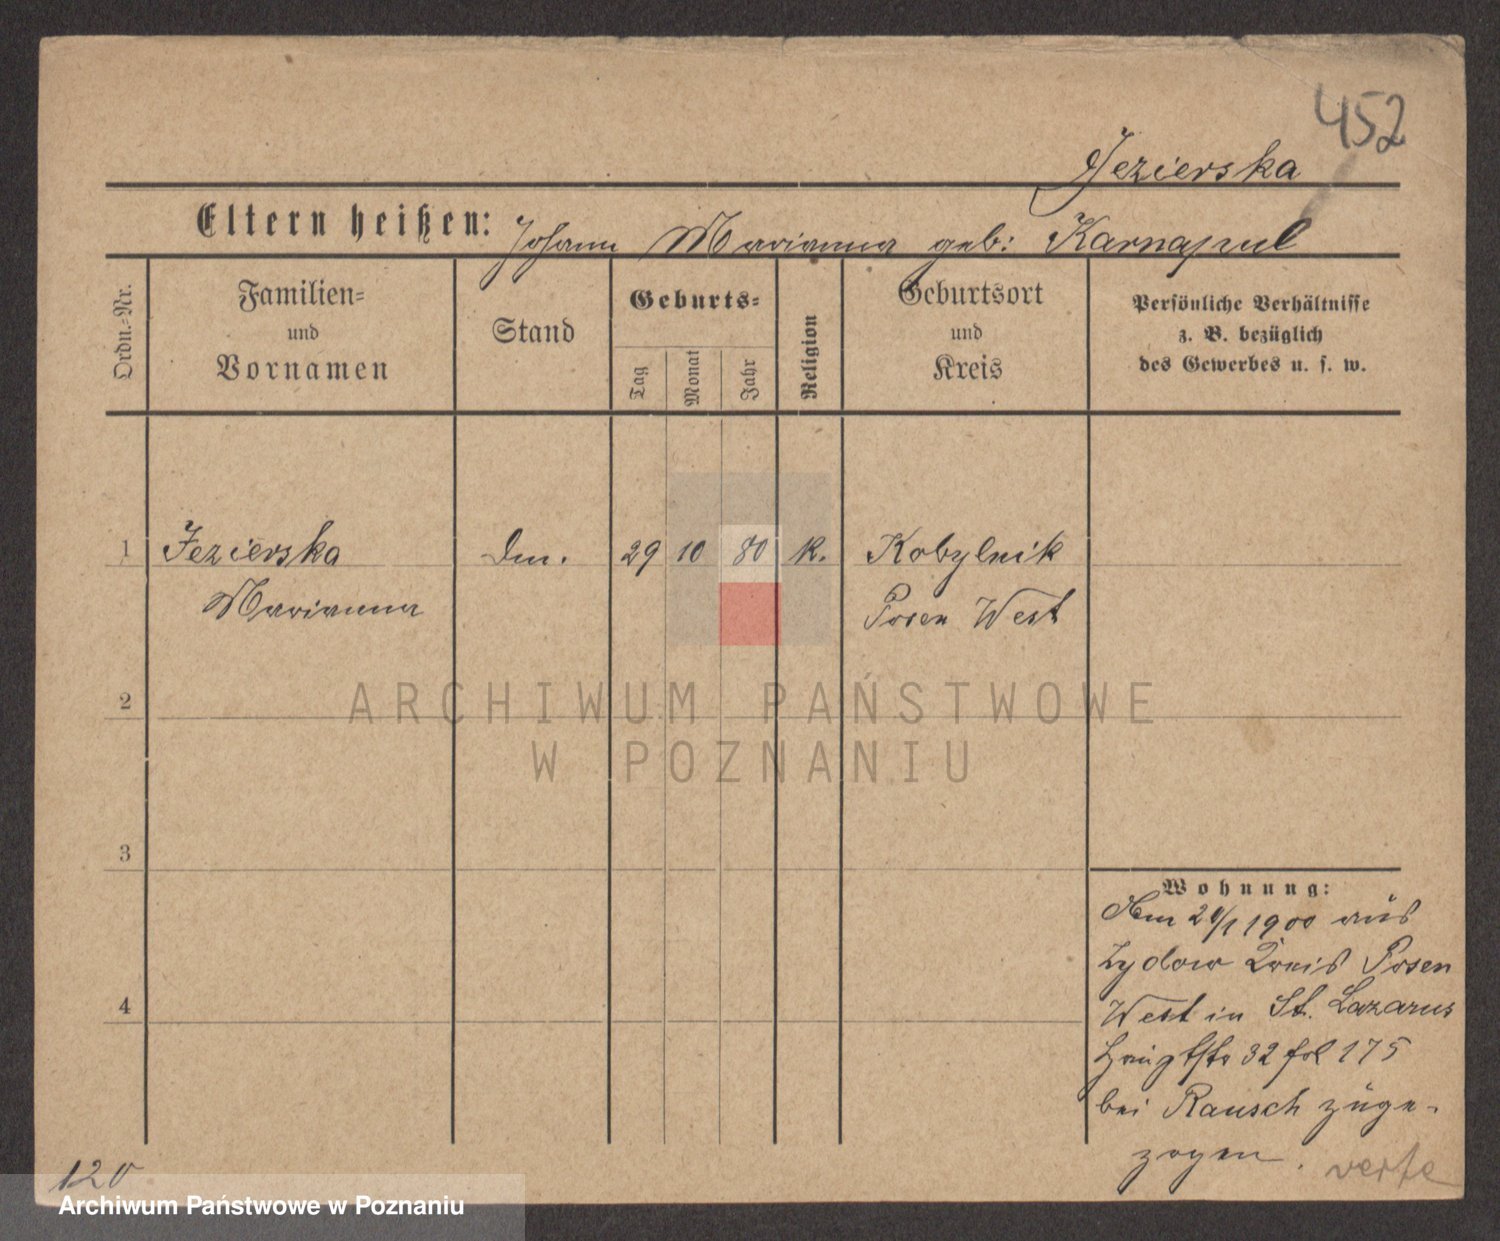 452
Jezierska
Eltern heißen: Johann Marianna geb: Karnapul
Ordn.-Nr.
Familien-
und
Vornamen
Stand
Geburts-
Tag
Monat
Jahr
Religion
Geburtsort
und
Kreis
Persönliche Verhältnisse
z. B. bezüglich
des Gewerbes u. s. w.
1 Jezierska 29 10 80 K. Kobylnik
Marianna Posen West
2
ARCHIWUM PAŃSTWOWE
W POZNANIU
3
4
Wohnung:
Am 1900 aus
Zydow Kreis Posen
West in St. Lazarus
Hauptstr 32 fol 175
bei Rausch zuge-
zogen.
verte
120
Archiwum Państwowe w Poznaniu